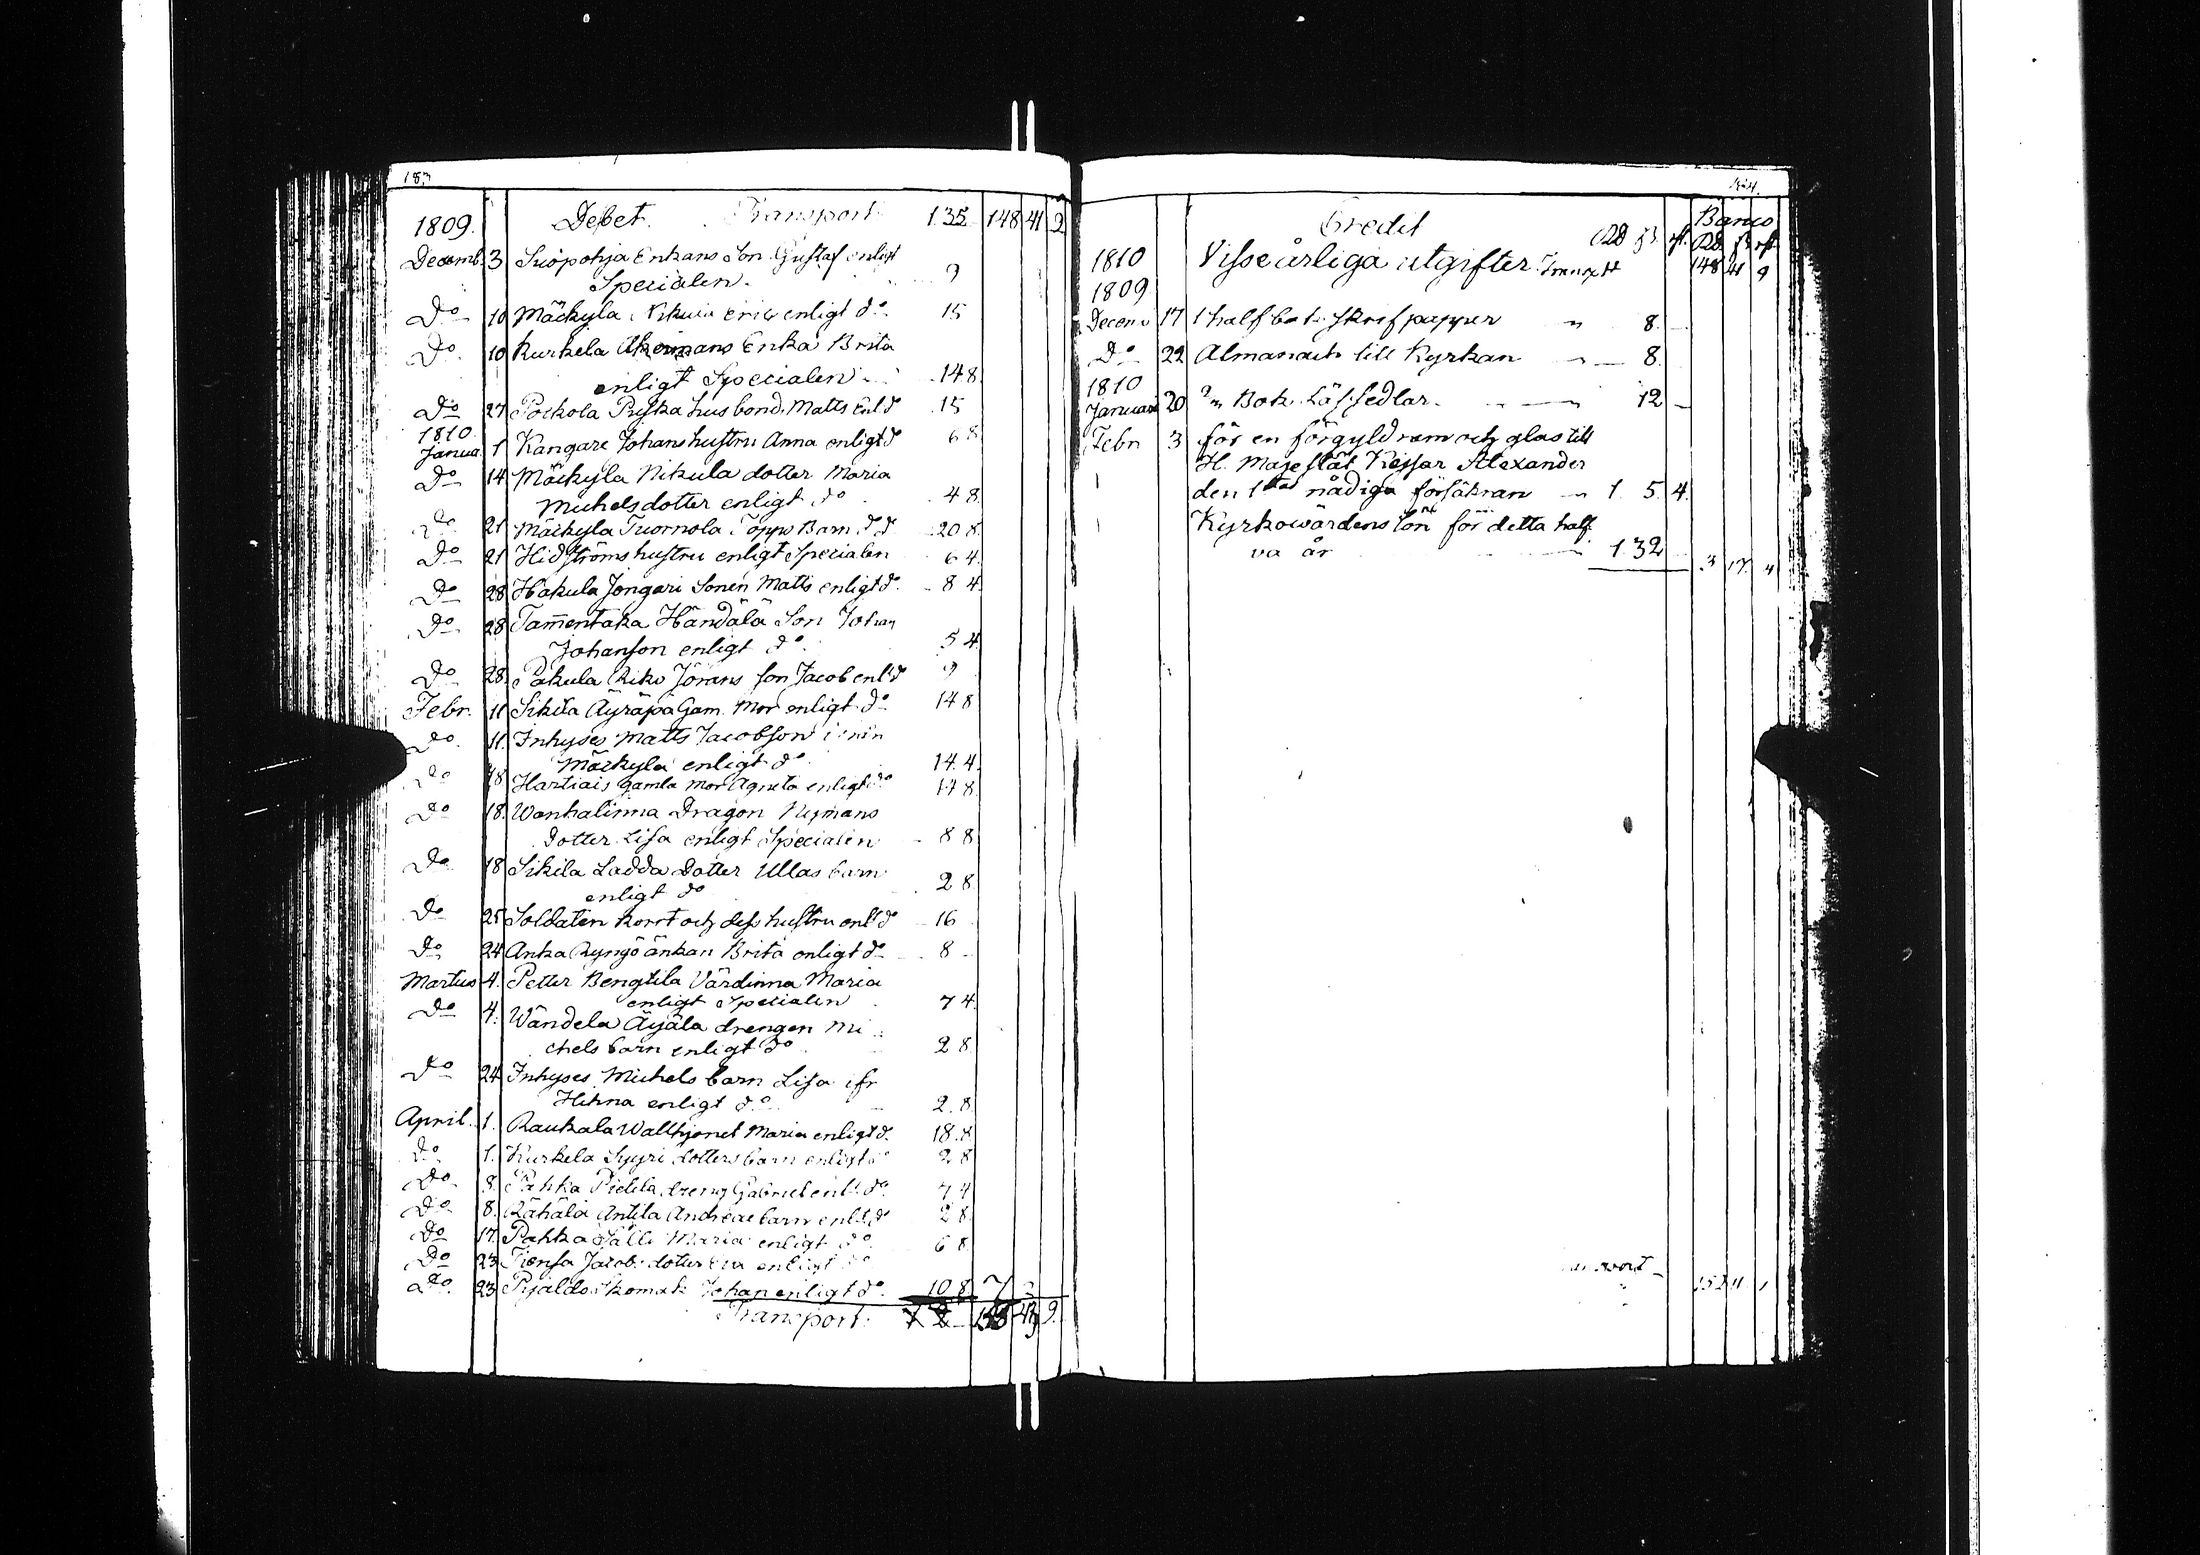 183
1809. Debet. Transport 1 35 148 41 9
Decemb. 3 Suopohja Enkans Son Gustaf enligt
Specialen. 9
Do 10 Mäckylä Nikula eric enligt do 15
Do 10 Kurkela Åkermans Enka Brita
enligt Specialen 14 8
Do 27 Pockola Puska husbond. Matts Enl do 15
1810
Janua. 1 Kangare Johans hustru Anna enligt do 6 8
Do 14 Mäckylä Nikula dotter Maria
Michelsdotter enligt do 4 8
Do 21 Mäckyla Tuornola Topps Barn do do 20 8
Do 21 Hidströms hustru enligt Specialen 6 4
Do 28 Hakula Jongari Sonen Matts enligt do 8 4
Do 28 Tam̄entaka Händälä Son Johan
Johanson enligt do 5 4
Do 28 Pakula Riko Jörans son Jacob enl do 9
Febr. 11 Sikila Äyräpä Gam. Mor enligt do 14 8
Do 11. Inhyses Matts Jacobson i
Mäckylä enligt do 14. 4
Do 18 Hartiais gamla mor Agneta enligt do 14 8
Do 18. Wanhalinna Dragon Nymans
dotter Lisa enligt Specialen 8 8
Do 18 Sikila Ladda Dotter Ullas barn
enligt do 2 8
Do 25 Soldaten Korrt och dess hustru enl do 16
Do 24 Anka Ryngö änkan Brita enligt do 8
Martius 4. Petter Bengtila Värdinna Maria
enligt Specialen 7 4
Do 4. Wändelä Äyälä drengen Mi
chels barn enligt do 2 8
Do 24 Inhyses Michels barn Lisa ifr
Hihna enligt do 2. 8
April. 1. Raukala Wallhjonet Maria enligt do 18. 8
Do 1. Kurkela Syyri dotters barn enligt do 2 8
Do 8. Pahka Pietila dreng Gabriel enl. do 7 4
Do 8. Rähälä Antila Andreae barn enl do 2 8
Do 17. Pahka Sälli Maria enligt do 6 8
Do 23 Jacobs dotter enligt do
Do 23 Skomak Johan enligt do 10 8
Transport 9.
Credit Banco
RD ß rst. RD ß rst
1810 Visse årliga utgifter Transpt 148 41 9
1809
Decem 17 1 half bok skrifpapper " 8.
Do 22 Almanach till Kyrkan " 8.
1810
Januari 20 2n Bok Läs sedlar 12
Febr 3 för en förgyld ram och glas till
H. Majestät Kejsar Alexander
den 1stas nådiga försäkran 1 5 4.
Kyrkowärdens lön för detta half
va år 1 32 3 17. 4